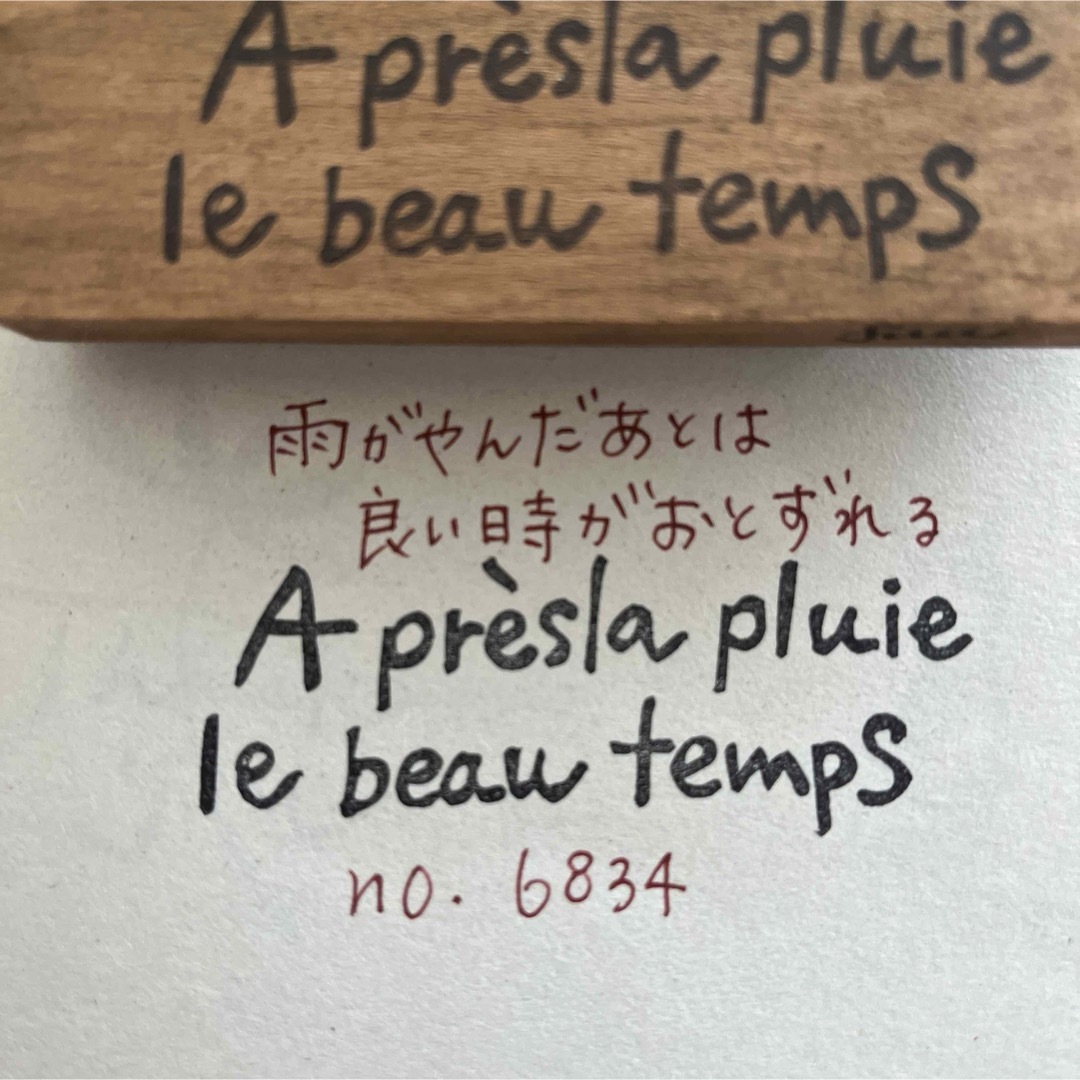 A prèsla pluie
le beau temps
雨がやんだあとは
良い時がおとずれる
A prèsla pluie
le beau temps
no. 6834